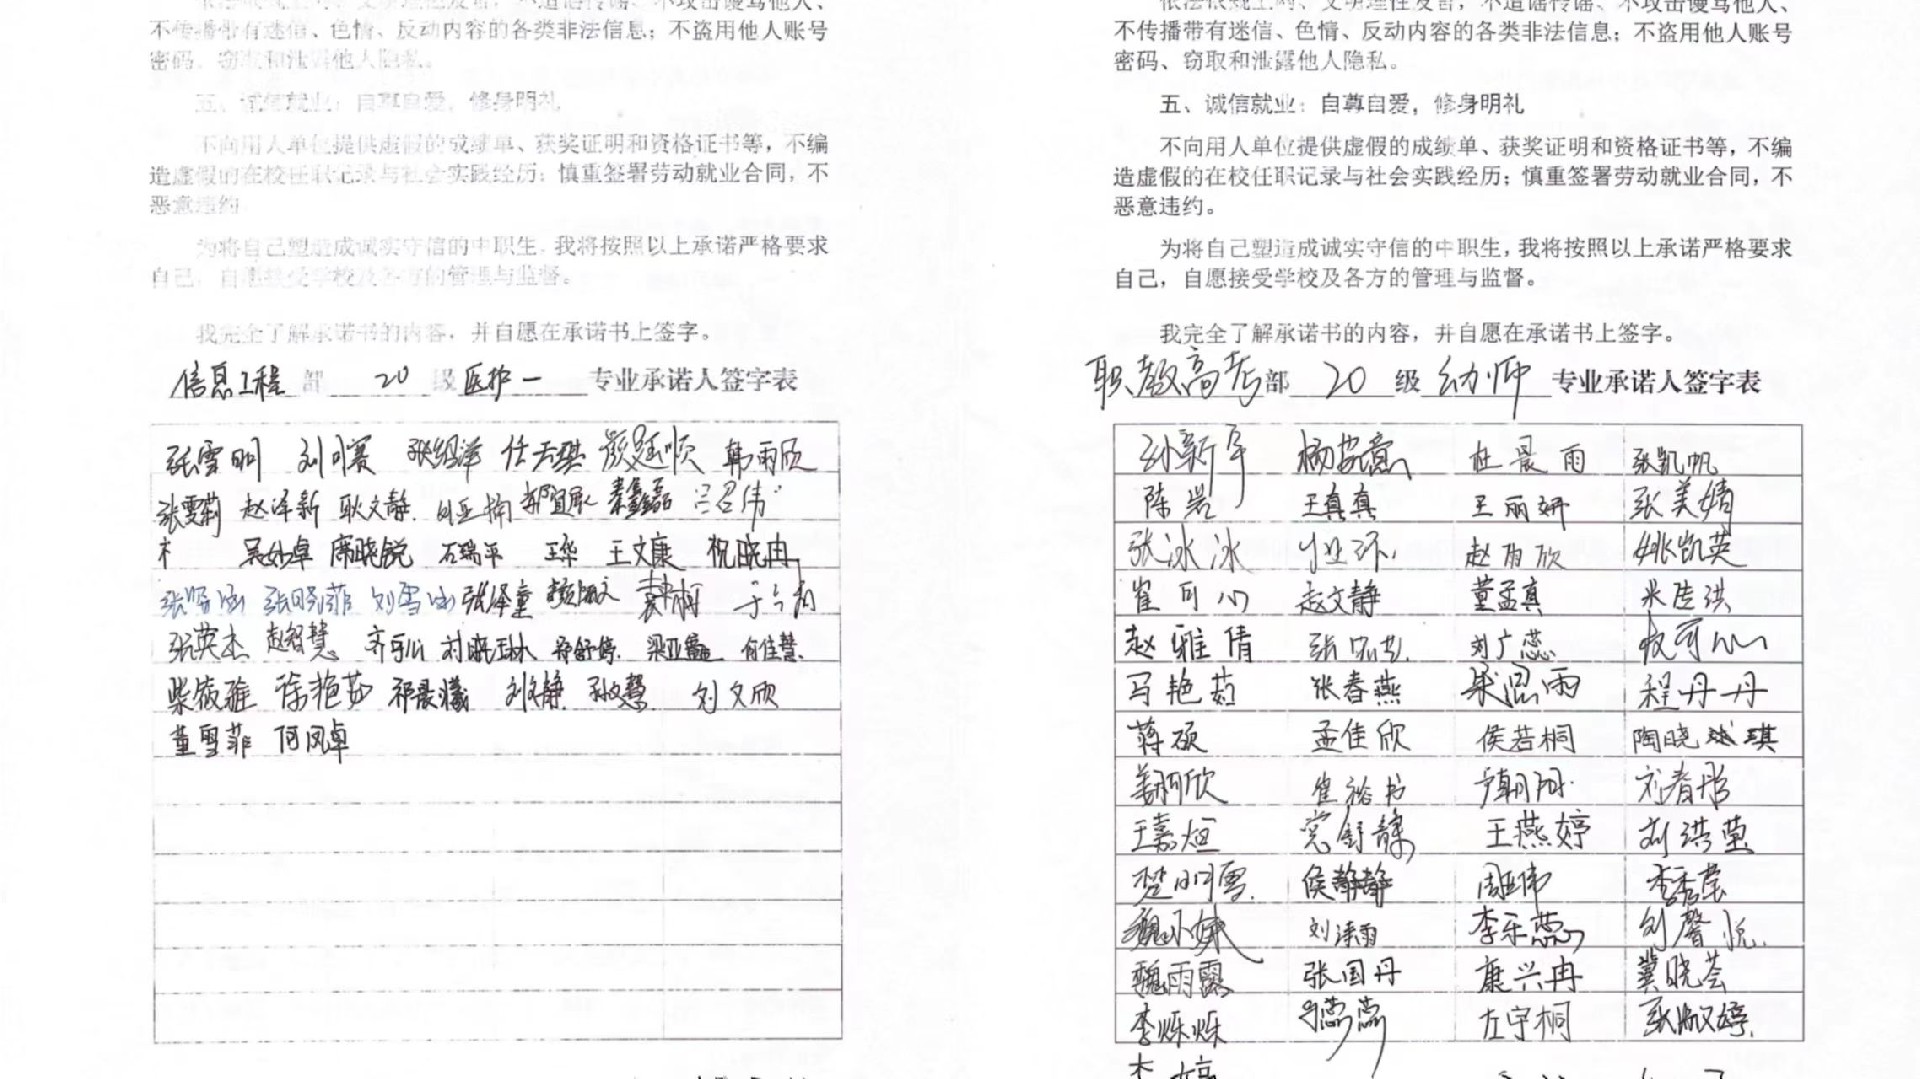 不传播带有迷信、色情、反动内容的各类非法信息；不盗用他人账号
密码、窃取和泄露他人隐私。
五、诚信就业：自尊自爱，修身明礼
不向用人单位提供虚假的成绩单、获奖证明和资格证书等，不编
造虚假的在校任职记录与社会实践经历；慎重签署劳动就业合同，不
恶意违约
为将自己塑造成诚实守信的中职生，我将按照以上承诺严格要求
自己，自愿接受学校及各方的管理与监督。
我完全了解承诺书的内容，并自愿在承诺书上签字。
信息工程 部 20 级 医护一 专业承诺人签字表
张雪明 刘可赛 任天琪 韩雨欣
张雯莉 赵泽新 耿文静 秦鑫磊 吕召伟
吴如卓 席晓锐 石瑞平 王华 王文康 祝晓冉
张晓菲 刘雪冰 张泽童 袁柯
张英杰 赵智慧 齐可心 刘晓琳 何佳慧
柴筱雅 徐艳茹 祁晨曦 刘文静 刘文欣
董雪菲 何凤卓
依法依规上网、文明理性发言，不造谣传谣、不攻击谩骂他人、
不传播带有迷信、色情、反动内容的各类非法信息；不盗用他人账号
密码、窃取和泄露他人隐私。
五、诚信就业：自尊自爱，修身明礼
不向用人单位提供虚假的成绩单、获奖证明和资格证书等，不编
造虚假的在校任职记录与社会实践经历；慎重签署劳动就业合同，不
恶意违约。
为将自己塑造成诚实守信的中职生，我将按照以上承诺严格要求
自己，自愿接受学校及各方的管理与监督。
我完全了解承诺书的内容，并自愿在承诺书上签字。
职教高考部 20 级 幼师 专业承诺人签字表
孙新宇 杨安意 杜晨雨 张凯帆
陈岩 王真真 王丽妍 张美婧
张冰冰 赵雨欣 姚凯英
崔可心 赵文静 董孟真 米佳洪
赵雅倩 刘广蕊
马艳茹 张春燕 梁思雨 程丹丹
蒋硕 孟佳欣 侯若桐 陶晓琪
姜珂欣 崔裕书 尹朝阳 刘春彤
王嘉烜 党舒静 王燕婷 刘洪莹
楚明雪 侯静静 周亚伟 李秀莹
魏小娥 刘沫雨 李乐蕊 刘馨悦
魏雨露 张国丹 康兴冉 冀晓荟
李烁烁 左宇桐 张淑婷